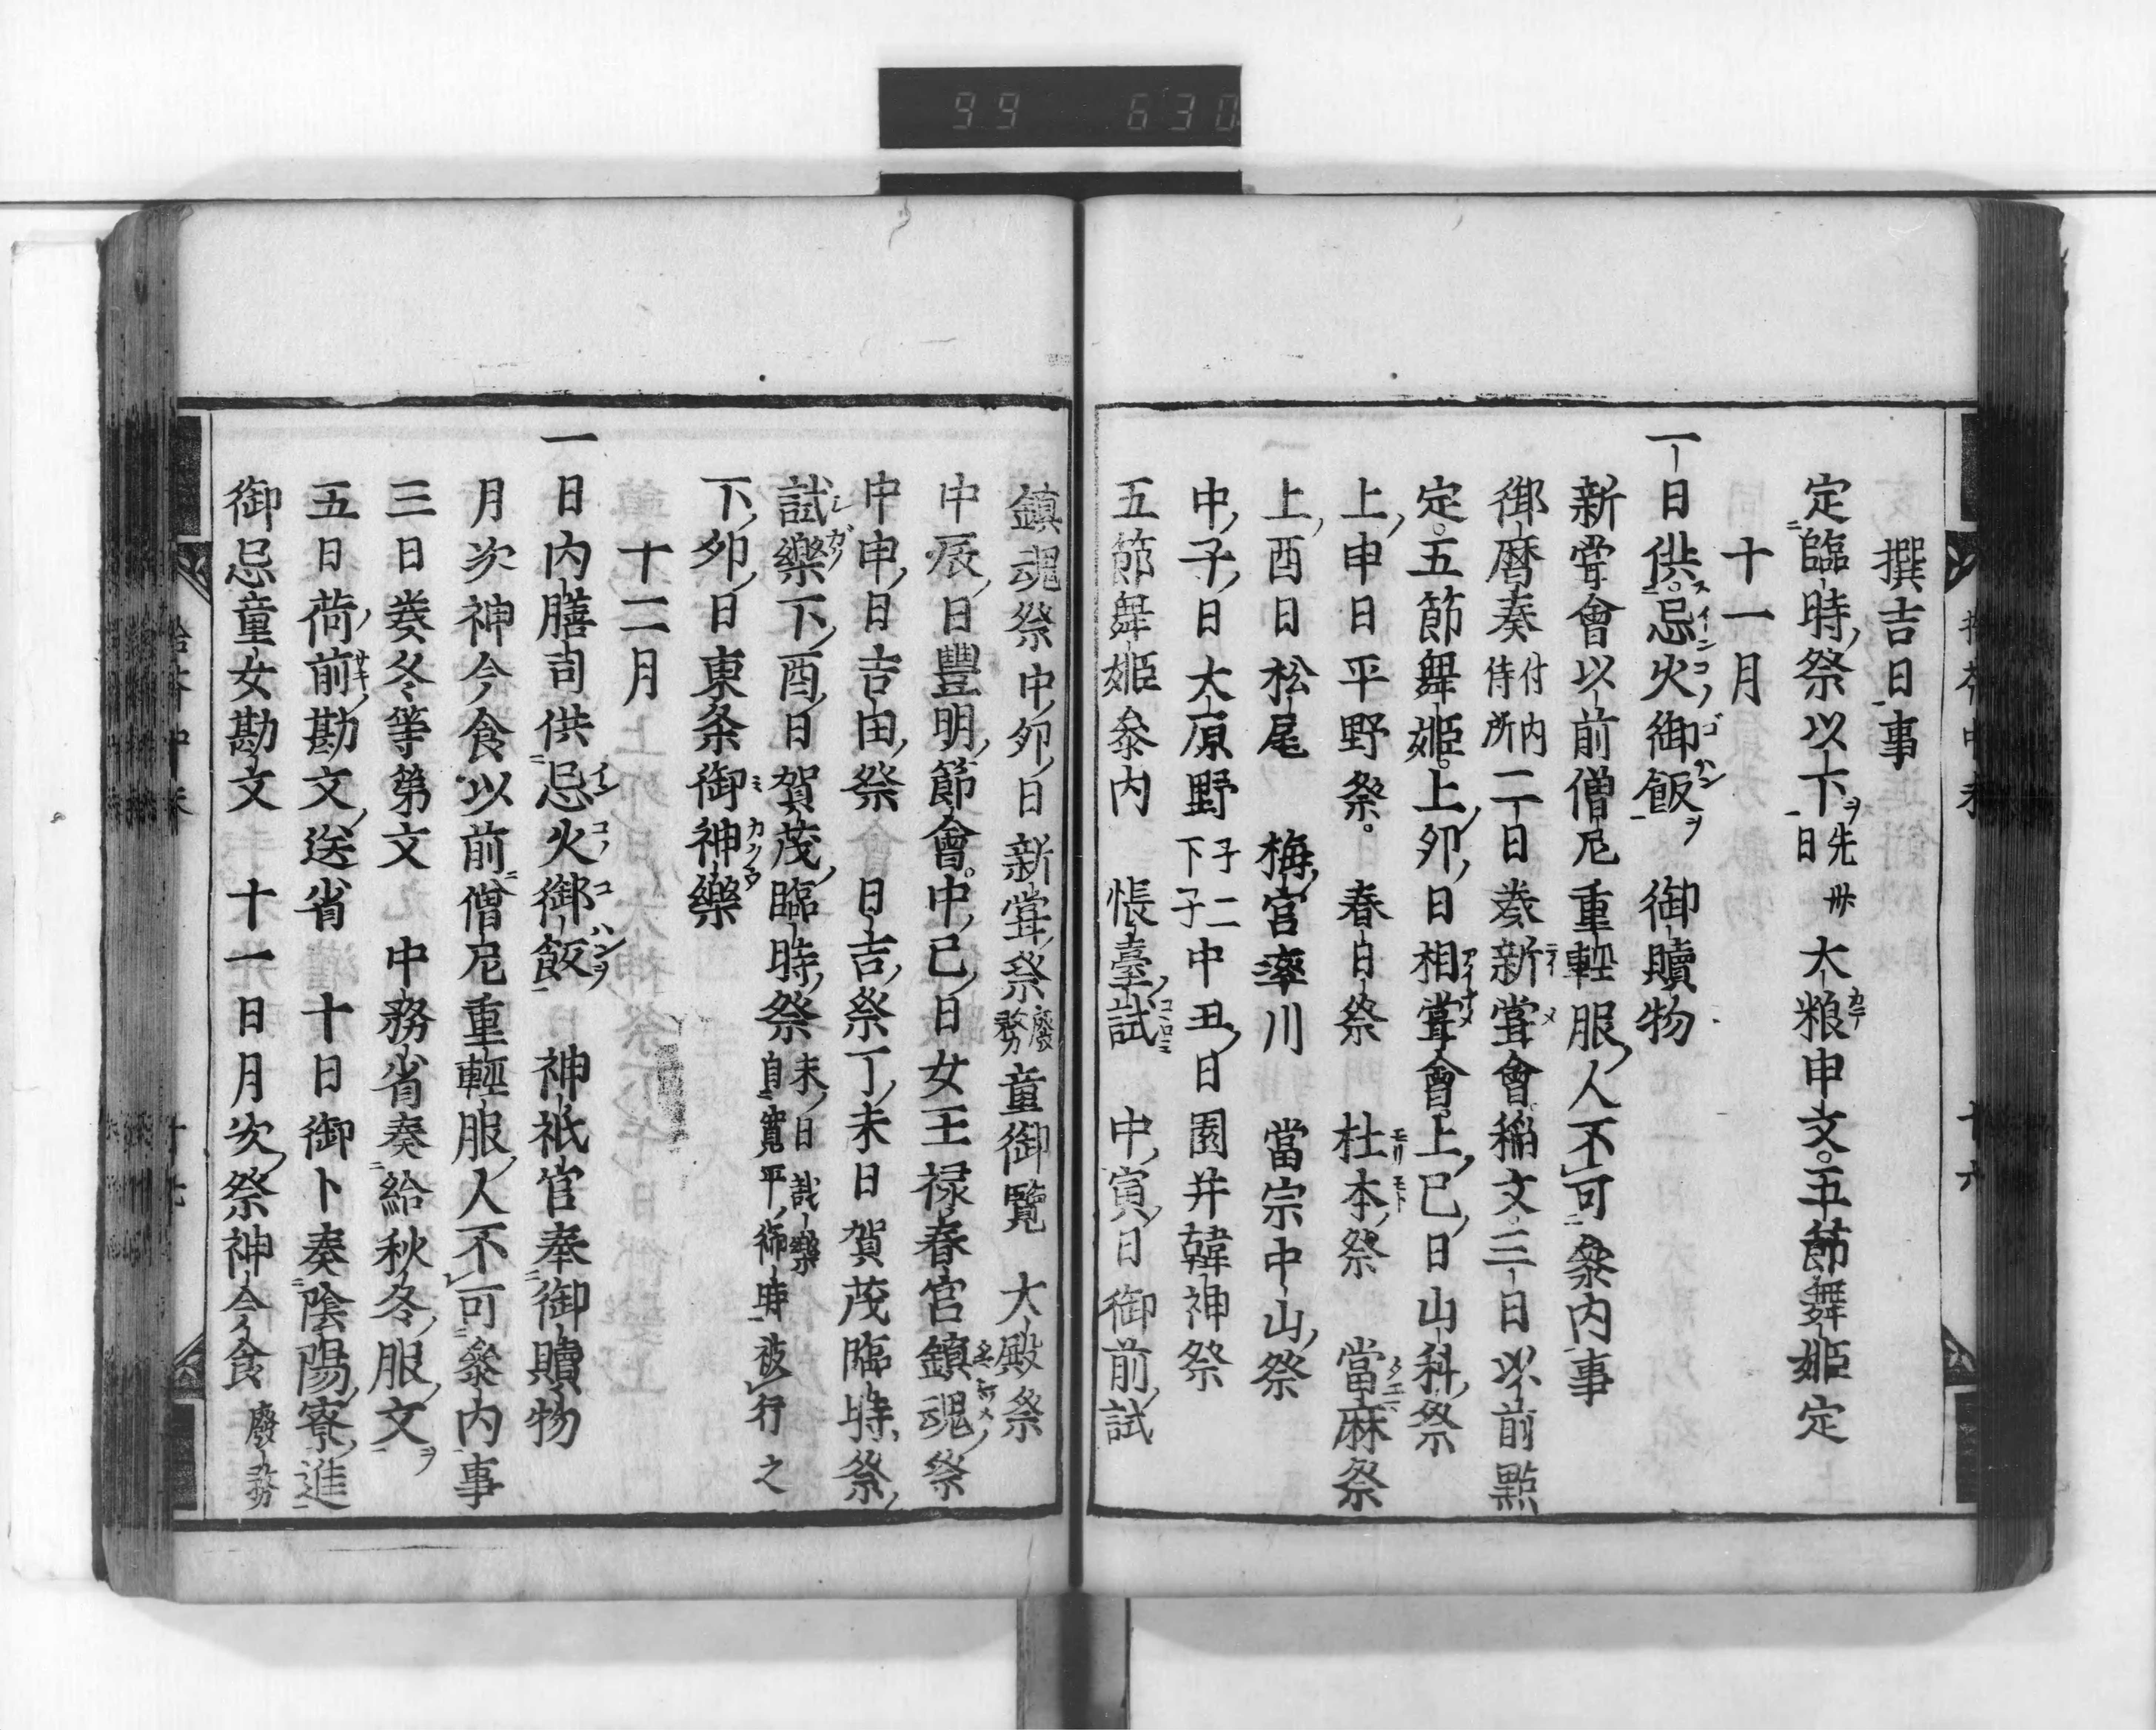 撰吉日事
定臨時祭以下ヲ先卅日 大粮申文。五節舞姫定
十一月
一日供忌火御飯ヲ 御贖物
新嘗會以前僧尼重輕服人不可參内事
御暦奏付内侍所 二日奏新嘗會稲文三日以前點
定。五節舞姫。上卯日相嘗會上巳日山科祭
上申日平野祭。 春日祭 杜本祭 當麻祭
上酉日松尾 梅宮率川 當宗中山祭
中子日大原野子二下子 中丑日園并韓神祭
五節舞姫參内 帳臺試 中寅日御前試
鎮魂祭中卯日新嘗祭廢務 童御覽 大殿祭
中辰日豐明節會。中巳日女王禄春宮鎮魂祭
中申日吉田祭 日吉祭丁未日賀茂臨時祭
試樂下酉日賀茂臨時祭
下卯日東条御神樂
十二月
一日内膳司供忌火御飯 神祇官奉御贖物
月次神今食以前僧尼重輕服人不可參内事
三日奏冬等第文 中務省奏給秋冬服文ヲ
五日荷前勘文送省 十日御卜奏陰陽寮進
御忌童女勘文 十一日月次祭神今食廢務
99 630